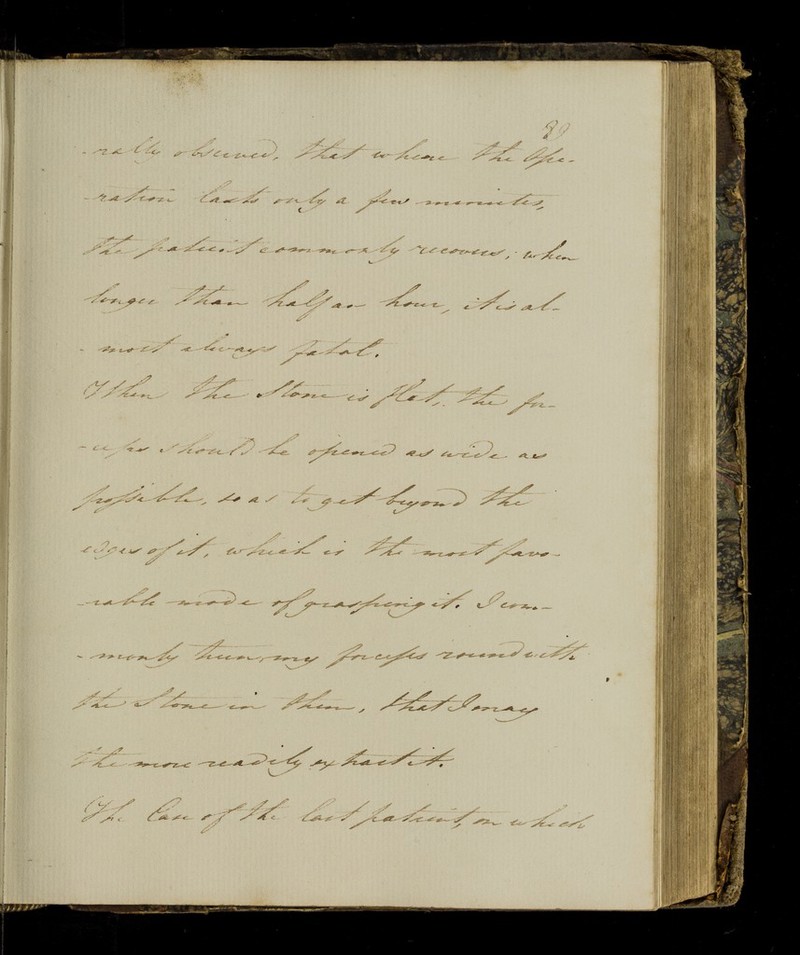 -rally observed, that where the Ope-
-ration lasts only a few minutes,
the patient commonly recovers; when
longer than half an hour, it is al-
-most always fatal.
When the Stone is flat, the for-
-ceps should be opened as wide as
possible, so as to get beyond the
edges of it, which is the most favo-
-rable mode of grasping it. I com-
-monly turn my forceps round with
the Stone in them, that I may
the more readily extract it.
The Case of the last patient, on which